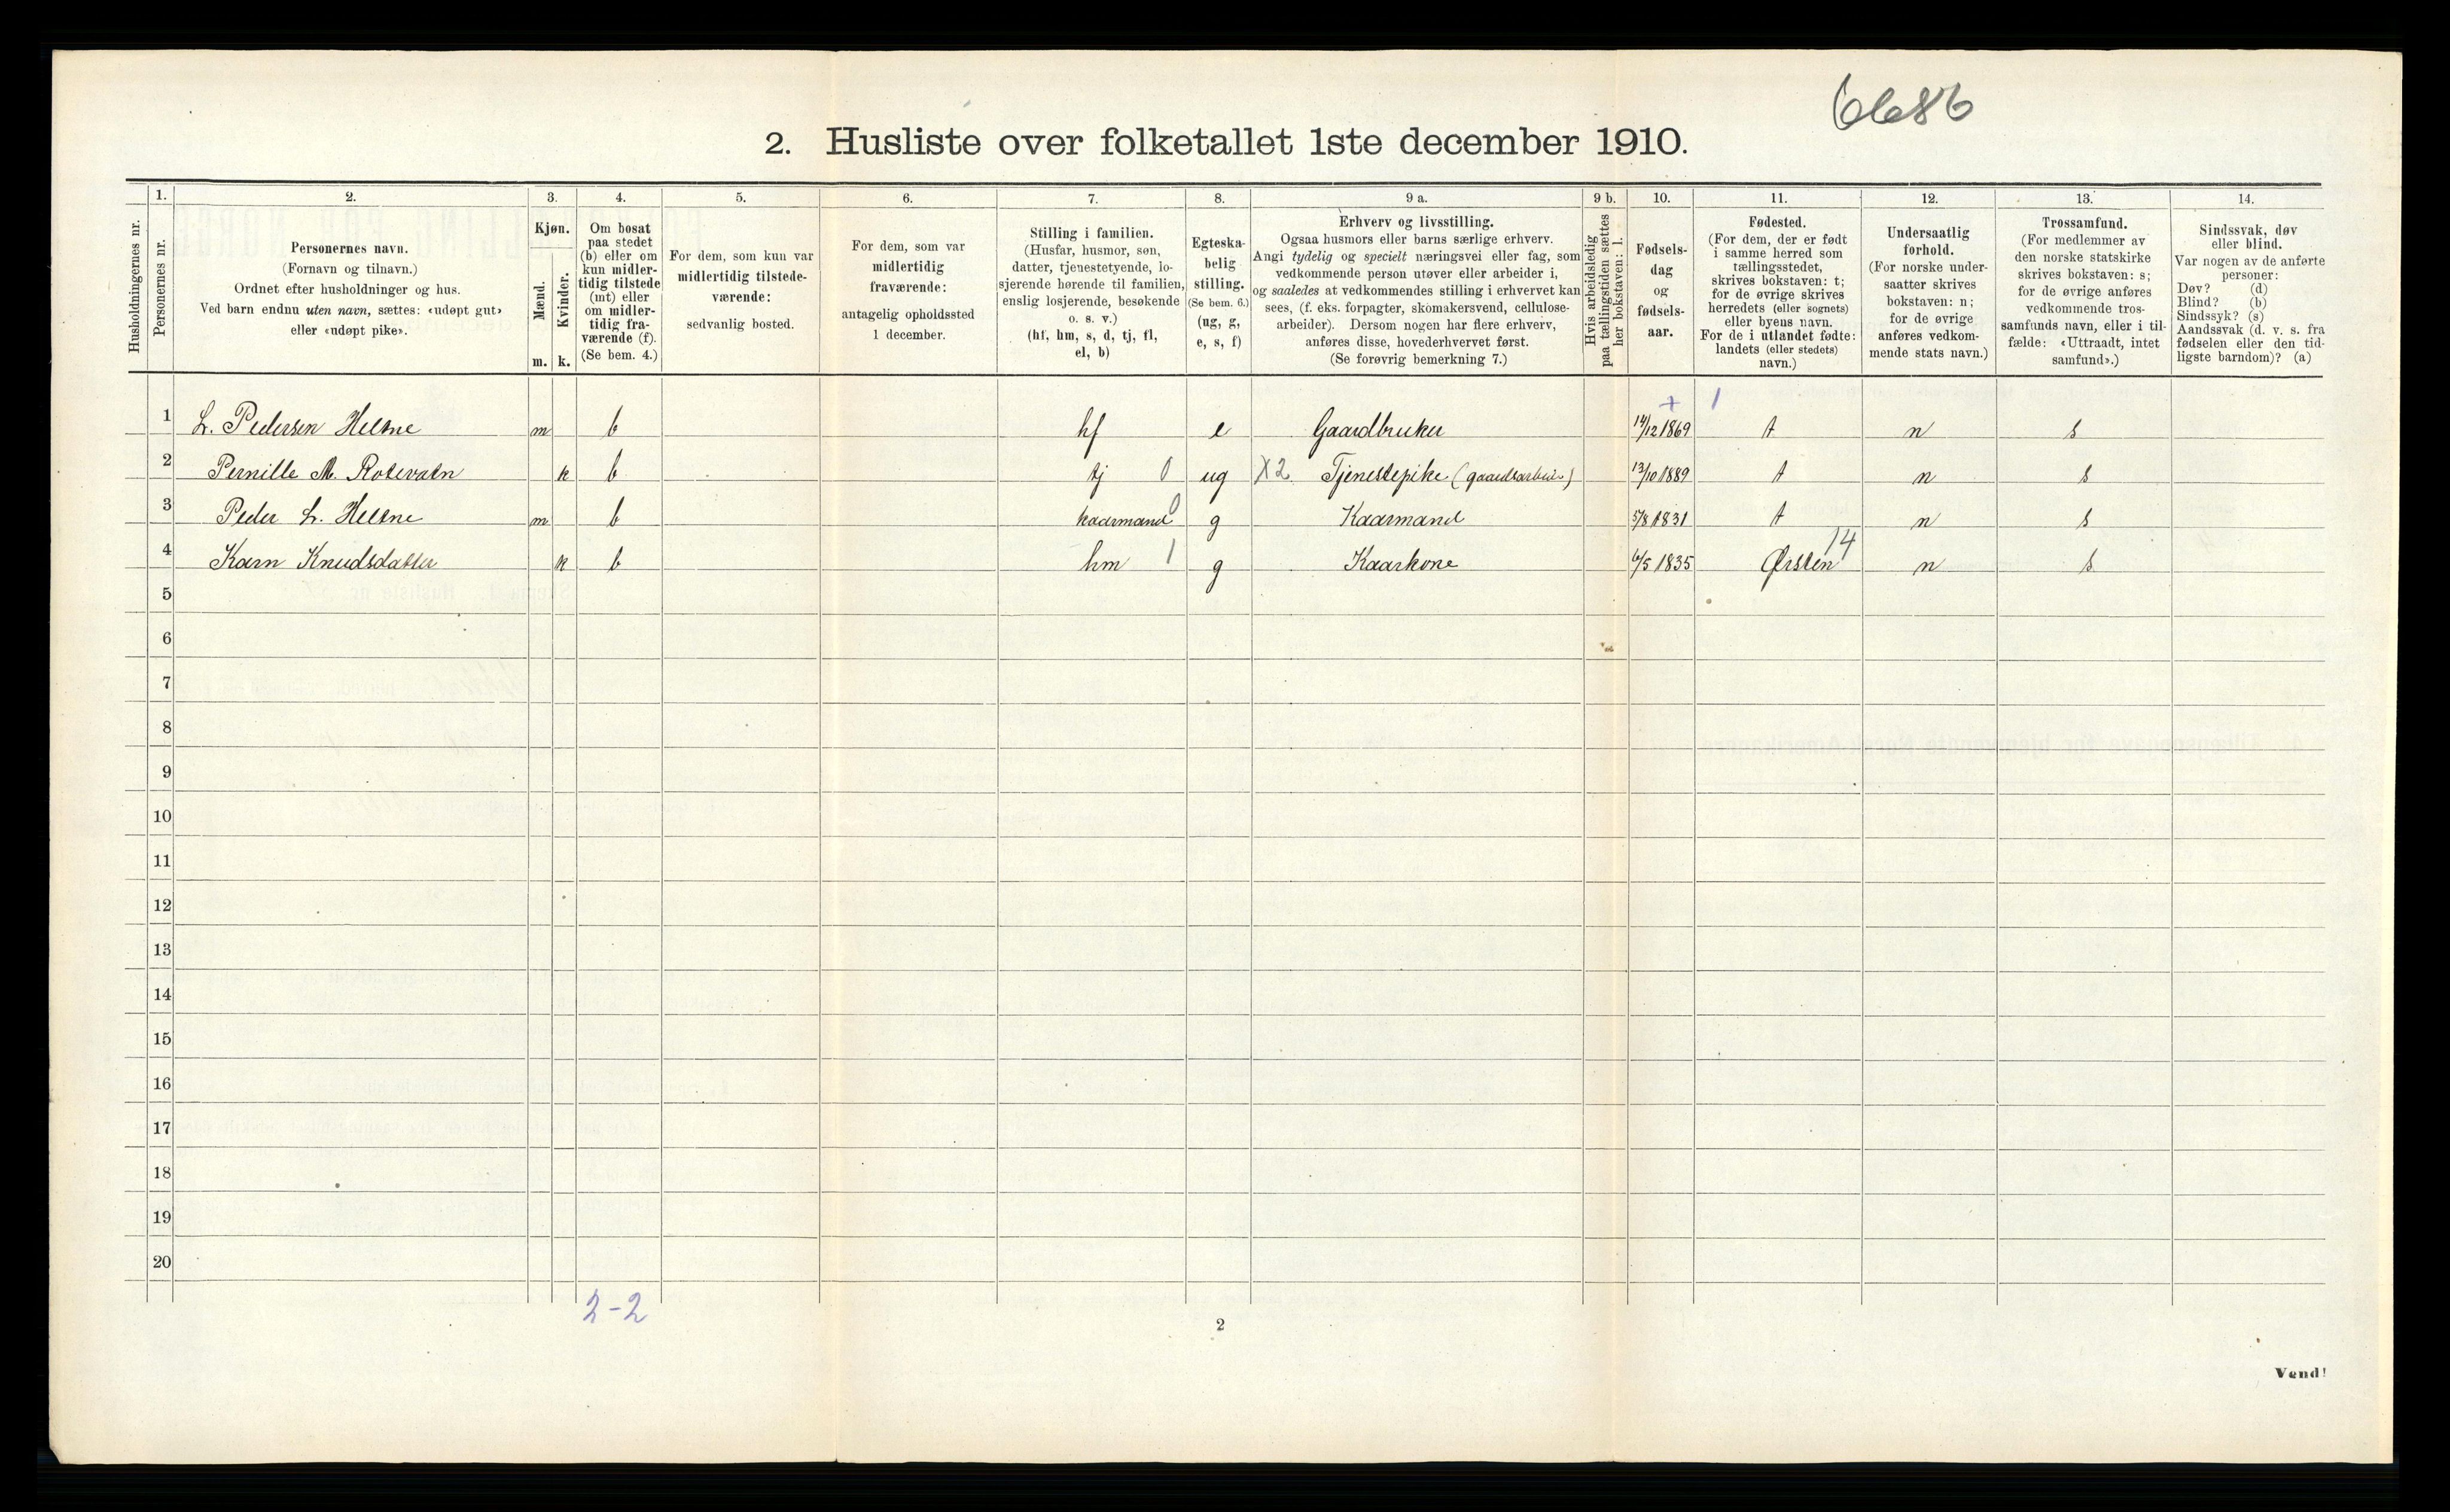 6686
2. Husliste over folketallet 1ste december 1910.
Husholdningernes nr.
1.
Personernes nr.
2.
Personernes navn.
(Fornavn og tilnavn.)
Ordnet efter husholdninger og hus.
Ved barn endnu uten navn, sættes: «udøpt gut»
eller «udøpt pike».
3.
Kjøn.
Mænd.
m.
Kvinder.
k.
4.
Om bosat
paa stedet
(b) eller om
kun midler-
tidig tilstede
(mt) eller
om midler-
tidig fra-
værende (f).
(Se bem. 4.)
5.
For dem, som kun var
midlertidig tilstede-
værende:
sedvanlig bosted.
6.
For dem, som var
midlertidig
fraværende:
antagelig opholdssted
1 december.
7.
Stilling i familien.
(Husfar, husmor, søn,
datter, tjenestetyende, lo-
sjerende hørende til familien,
enslig losjerende, besøkende
o. s. v.)
(hf, hm, s, d, tj, fl,
el, b)
8.
Egteska-
belig
stilling.
(Se bem. 6.)
(ug, g,
e, s, f)
9 a.
Erhverv og livsstilling.
Ogsaa husmors eller barns særlige erhverv.
Angi tydelig og specielt næringsvei eller fag, som
vedkommende person utøver eller arbeider i,
og saaledes at vedkommendes stilling i erhvervet kan
sees, (f. eks. forpagter, skomakersvend, cellulose-
arbeider). Dersom nogen har flere erhverv,
anføres disse, hovederhvervet først.
(Se forøvrig bemerkning 7.)
9 b.
Hvis arbeidsledig
paa tællingstiden sættes
her bokstaven: l.
10.
Fødsels-
dag
og
fødsels-
aar.
11.
Fødested.
(For dem, der er født
i samme herred som
tællingsstedet,
skrives bokstaven: t;
for de øvrige skrives
herredets (eller sognets)
eller byens navn.
For de i utlandet fødte:
landets (eller stedets)
navn.)
12.
Undersaatlig
forhold.
(For norske under-
saatter skrives
bokstaven: n;
for de øvrige
anføres vedkom-
mende stats navn.)
13.
Trossamfund.
(For medlemmer av
den norske statskirke
skrives bokstaven: s;
for de øvrige anføres
vedkommende tros-
samfunds navn, eller i til-
fælde: «Uttraadt, intet
samfund».)
14.
Sindssvak, døv
eller blind.
Var nogen av de anførte
personer:
Døv? (d)
Blind? (b)
Sindssyk? (s)
Aandssvak (d. v. s. fra
fødselen eller den tid-
ligste barndom)? (a)
1 L. Pedersen Heltne m b hf e Gaardbruker 14/12 1869 t n s
2 Pernille M. Rotevatn k b tj 0 ug X2 Tjenestepike (gaardsarbeide) 13/10 1889 t n s
3 Peder L. Heltne m b kaarmand 0 g Kaarmand 5/8 1831 t n s
4 Karn Knudsdatter k b hm 1 g Kaarkone 6/5 1835 Ørsten 14 n s
5
6
7
8
9
10
11
12
13
14
15
16
17
18
19
20
2-2
2
Vend!